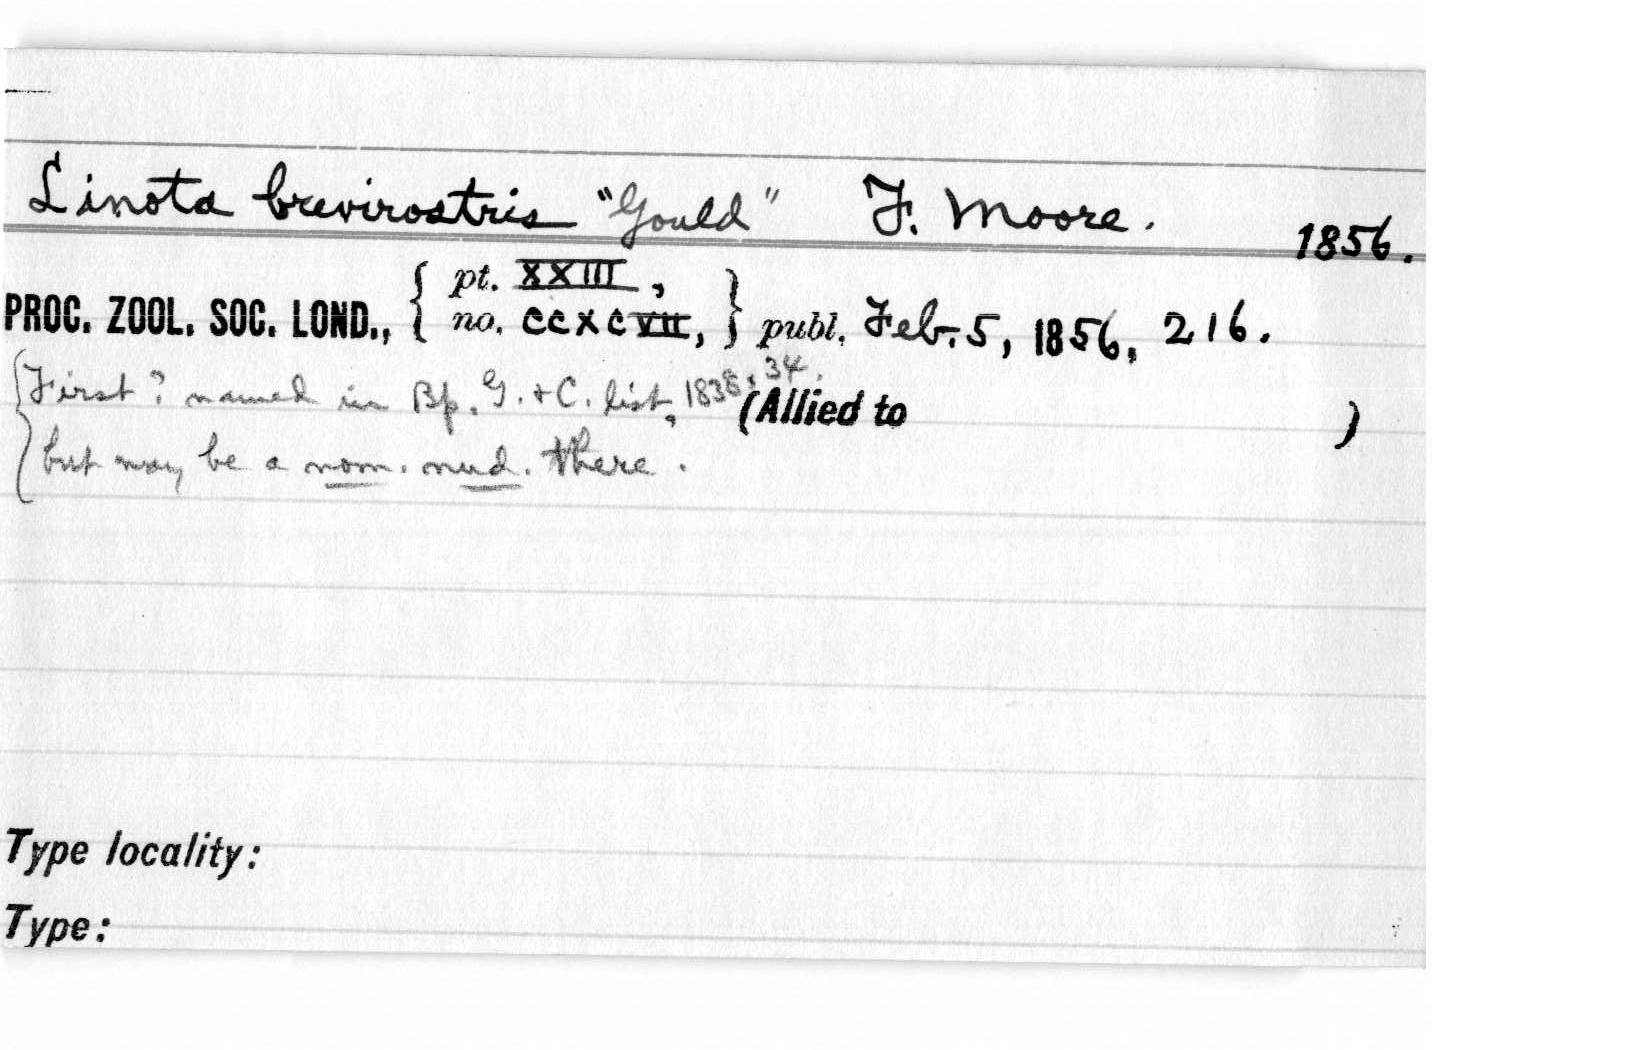 Linota brevirostris "Gould" F. Moore. 1856.
PROC. ZOOL. SOC. LOND., { pt. XXIII, no. CCXCVII, } publ. Feb. 5, 1856, 216.
{First? named in Bp. G. + C. list, 1838, 34.
(Allied to )
but may be a nom. nud. there.
Type locality:
Type: